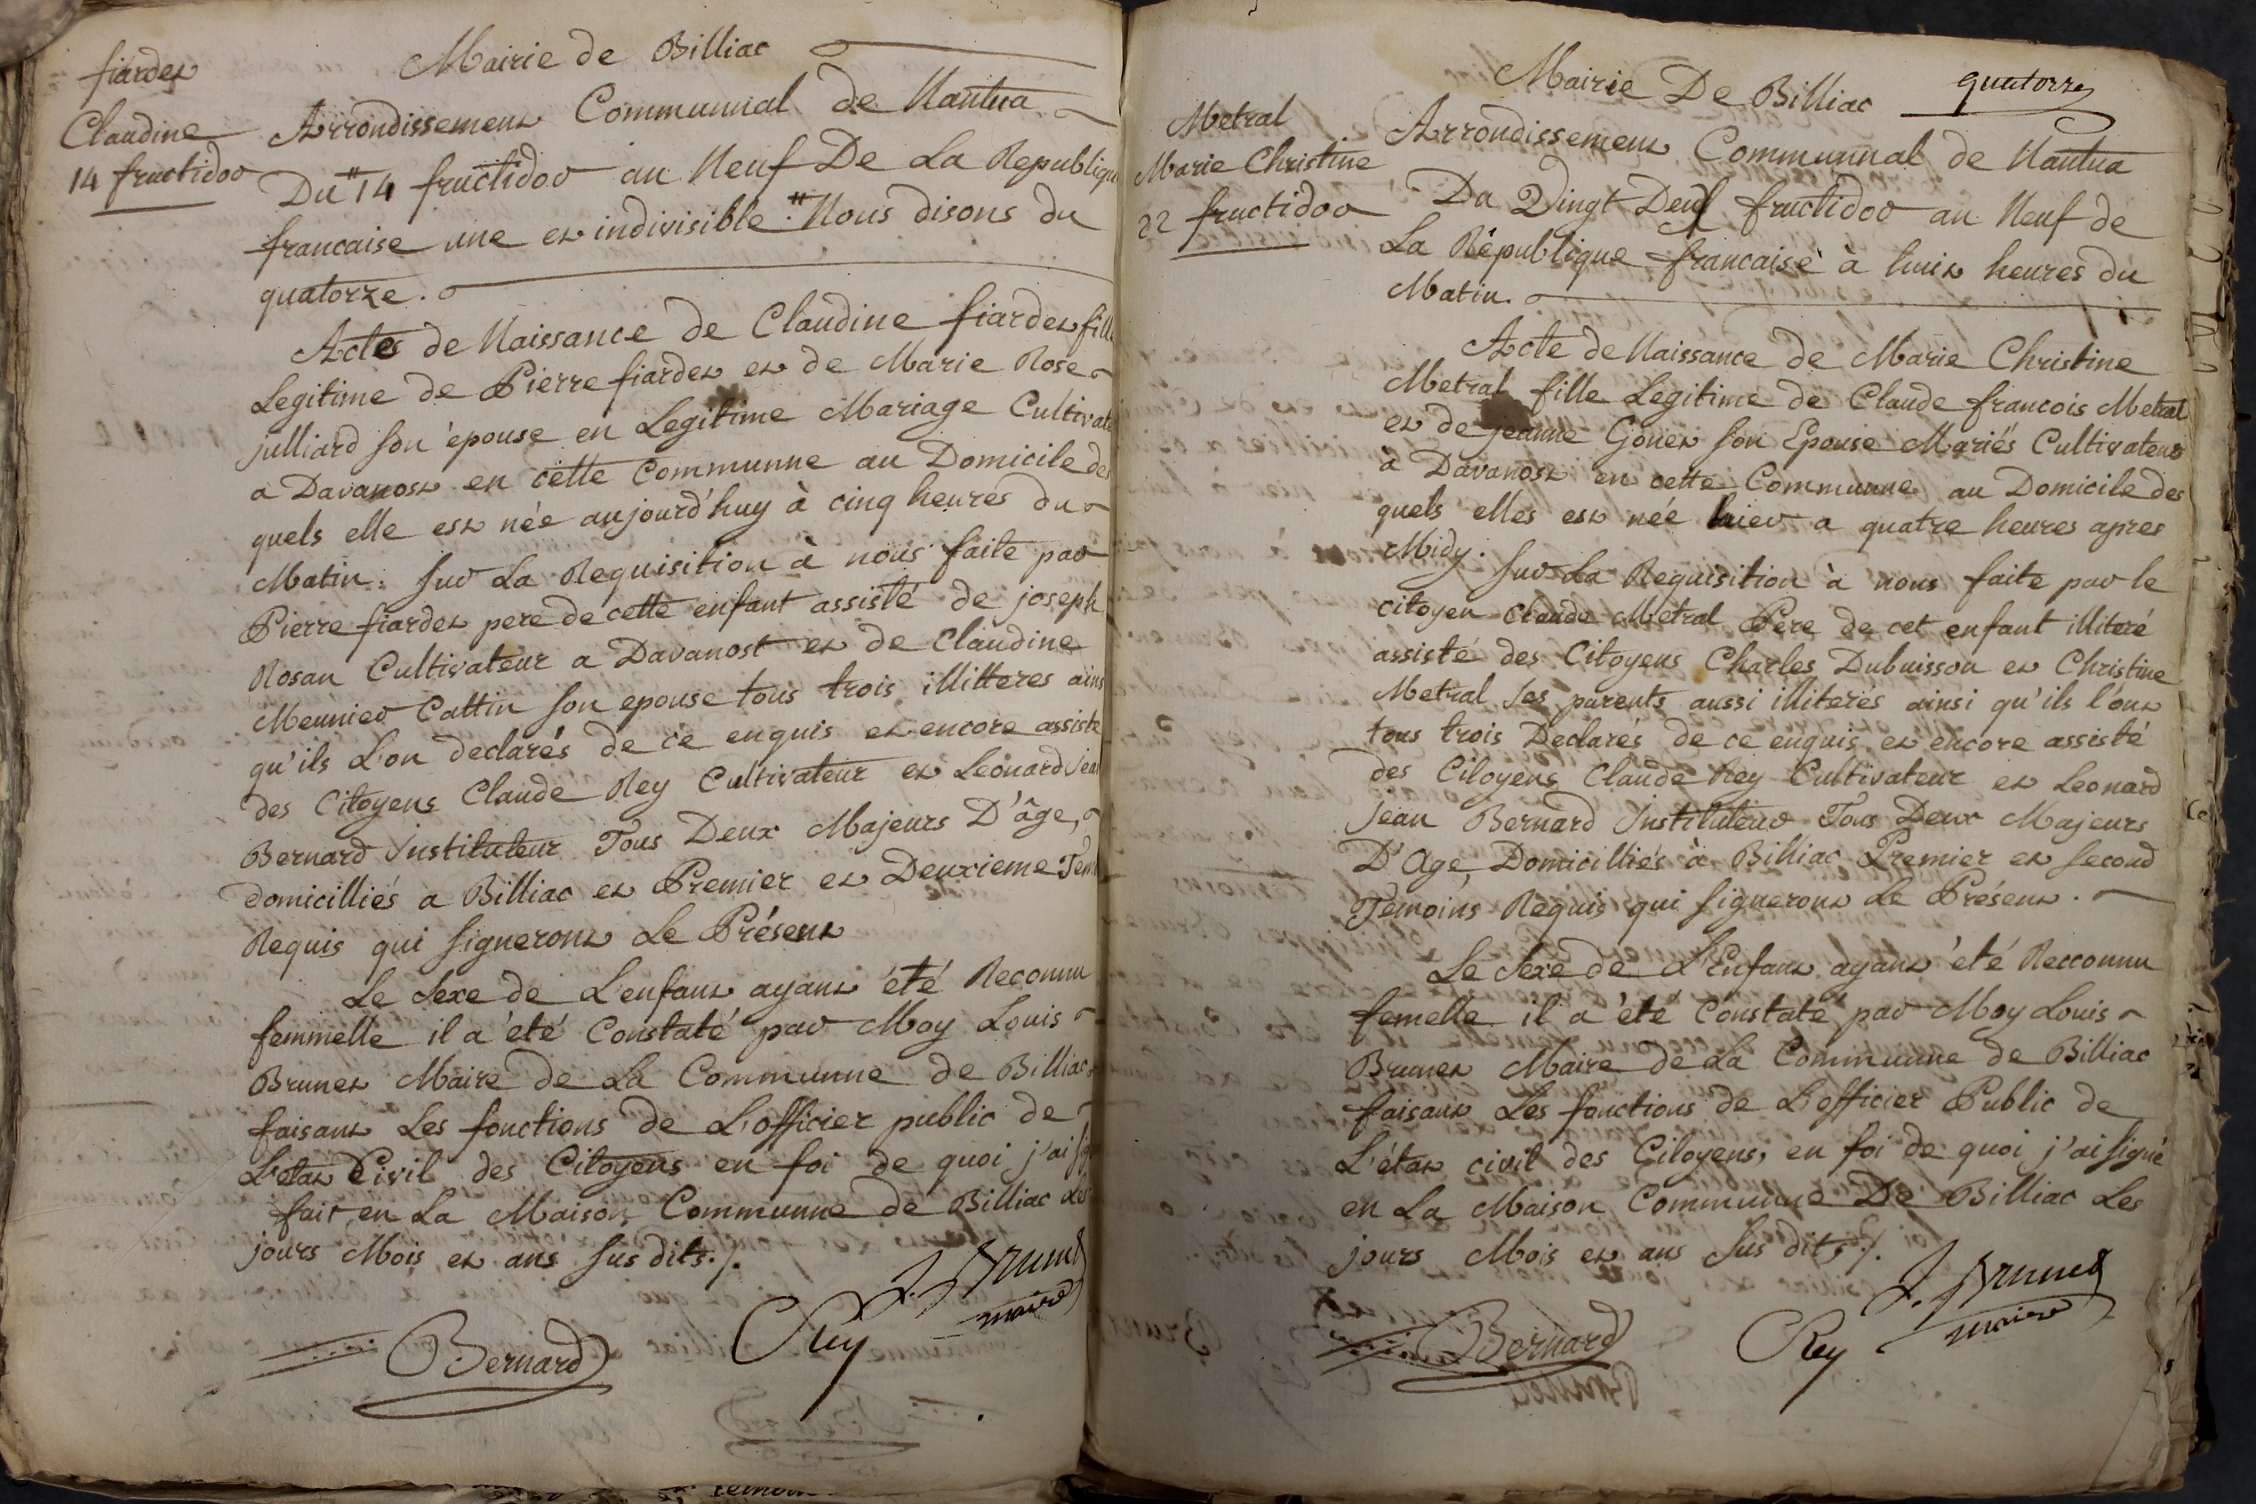 fiardet
Claudine
14 fructidor
Mairie de Billiac
Arrondissement Communnal de Nantua
Du 14 fructidor an Neuf De La Republique
francaise une et indivisible. Nous disons du
quatorze.
Actes de Naissance de Claudine fiardet fille
Legitime de Pierre fiardet et de Marie Rose
julliard son épouse en Legitime Mariage Cultivat
a Davanost en cette Communne au Domicile des
quels elle est née aujourd'huy à cinq heures du
Matin. sur La Requisition à nous faite par
Pierre fiardet pere de cette enfant assisté de joseph
Rosan Cultivateur a Davanost et de Claudine
Meunier Cattin son epouse tous trois illitteres ains
qu'ils L'on declarés de ce enquis et encore assisté
des Citoyens Claude Rey Cultivateur et Leonard Jean
Bernard Instituteur Tous Deux Majeurs D'âge,
domicilliés a Billiac et Premier et Deuxieme Tem
Requis qui signeront Le Présent
Le Sexe de L'enfant ayant été Reconnu
femmelle il a été Constaté par Moy Louis
Brunet Maire de La Communne de Billiac
faisant Les fonctions de L'officier public de
L'etat Civil des Citoyens en foi de quoi j'ai sig
fait en La Maison Communne de Billiac Les
jours Mois et ans sus dits./.
Bernard
Rey
L. Brunet
maire
quatorze
Metral
Marie Christine
22 fructidor
Mairie De Billiac
Arrondissement Communnal de Nantua
Du Vingt Deux fructidor an Neuf de
La République francaise à huit heures du
Matin.
Acte de Naissance de Marie Christine
Metral fille Legitime de Claude francois Metral
et de jeanne Gonet son Epouse Mariés Cultivateur
à Davanost en cette Communne au Domicile des
quels elles est née hier a quatre heures apres
Midy. sur La Requisition à nous faite par le
citoyen Claude Metral Père de cet enfant illiteré
assisté des Citoyens Charles Dubuisson et Christine
Metral ses parents aussi illiterés ainsi qu'ils l'ont
tous trois Declarés de ce enquis et encore assisté
des Citoyens Claude Rey Cultivateur et Leonard
Jean Bernard Instituteur Tous Deux Majeurs
D'Age Domicilliés à Billiac Premier et second
Temoins Requis qui signeront Le Présent.
Le Sexe de L'Enfant ayant été Recconnu
femelle il a été Constaté par Moy Louis
Brunet Maire de La Communne de Billiac
faisant Les fonctions de L'officier Public de
L'état civil des Citoyens, en foi de quoi j'ai signé
en La Maison Communne De Billiac Les
jours Mois et ans sus dits./.
Bernard
Rey
L. Brunet
maire